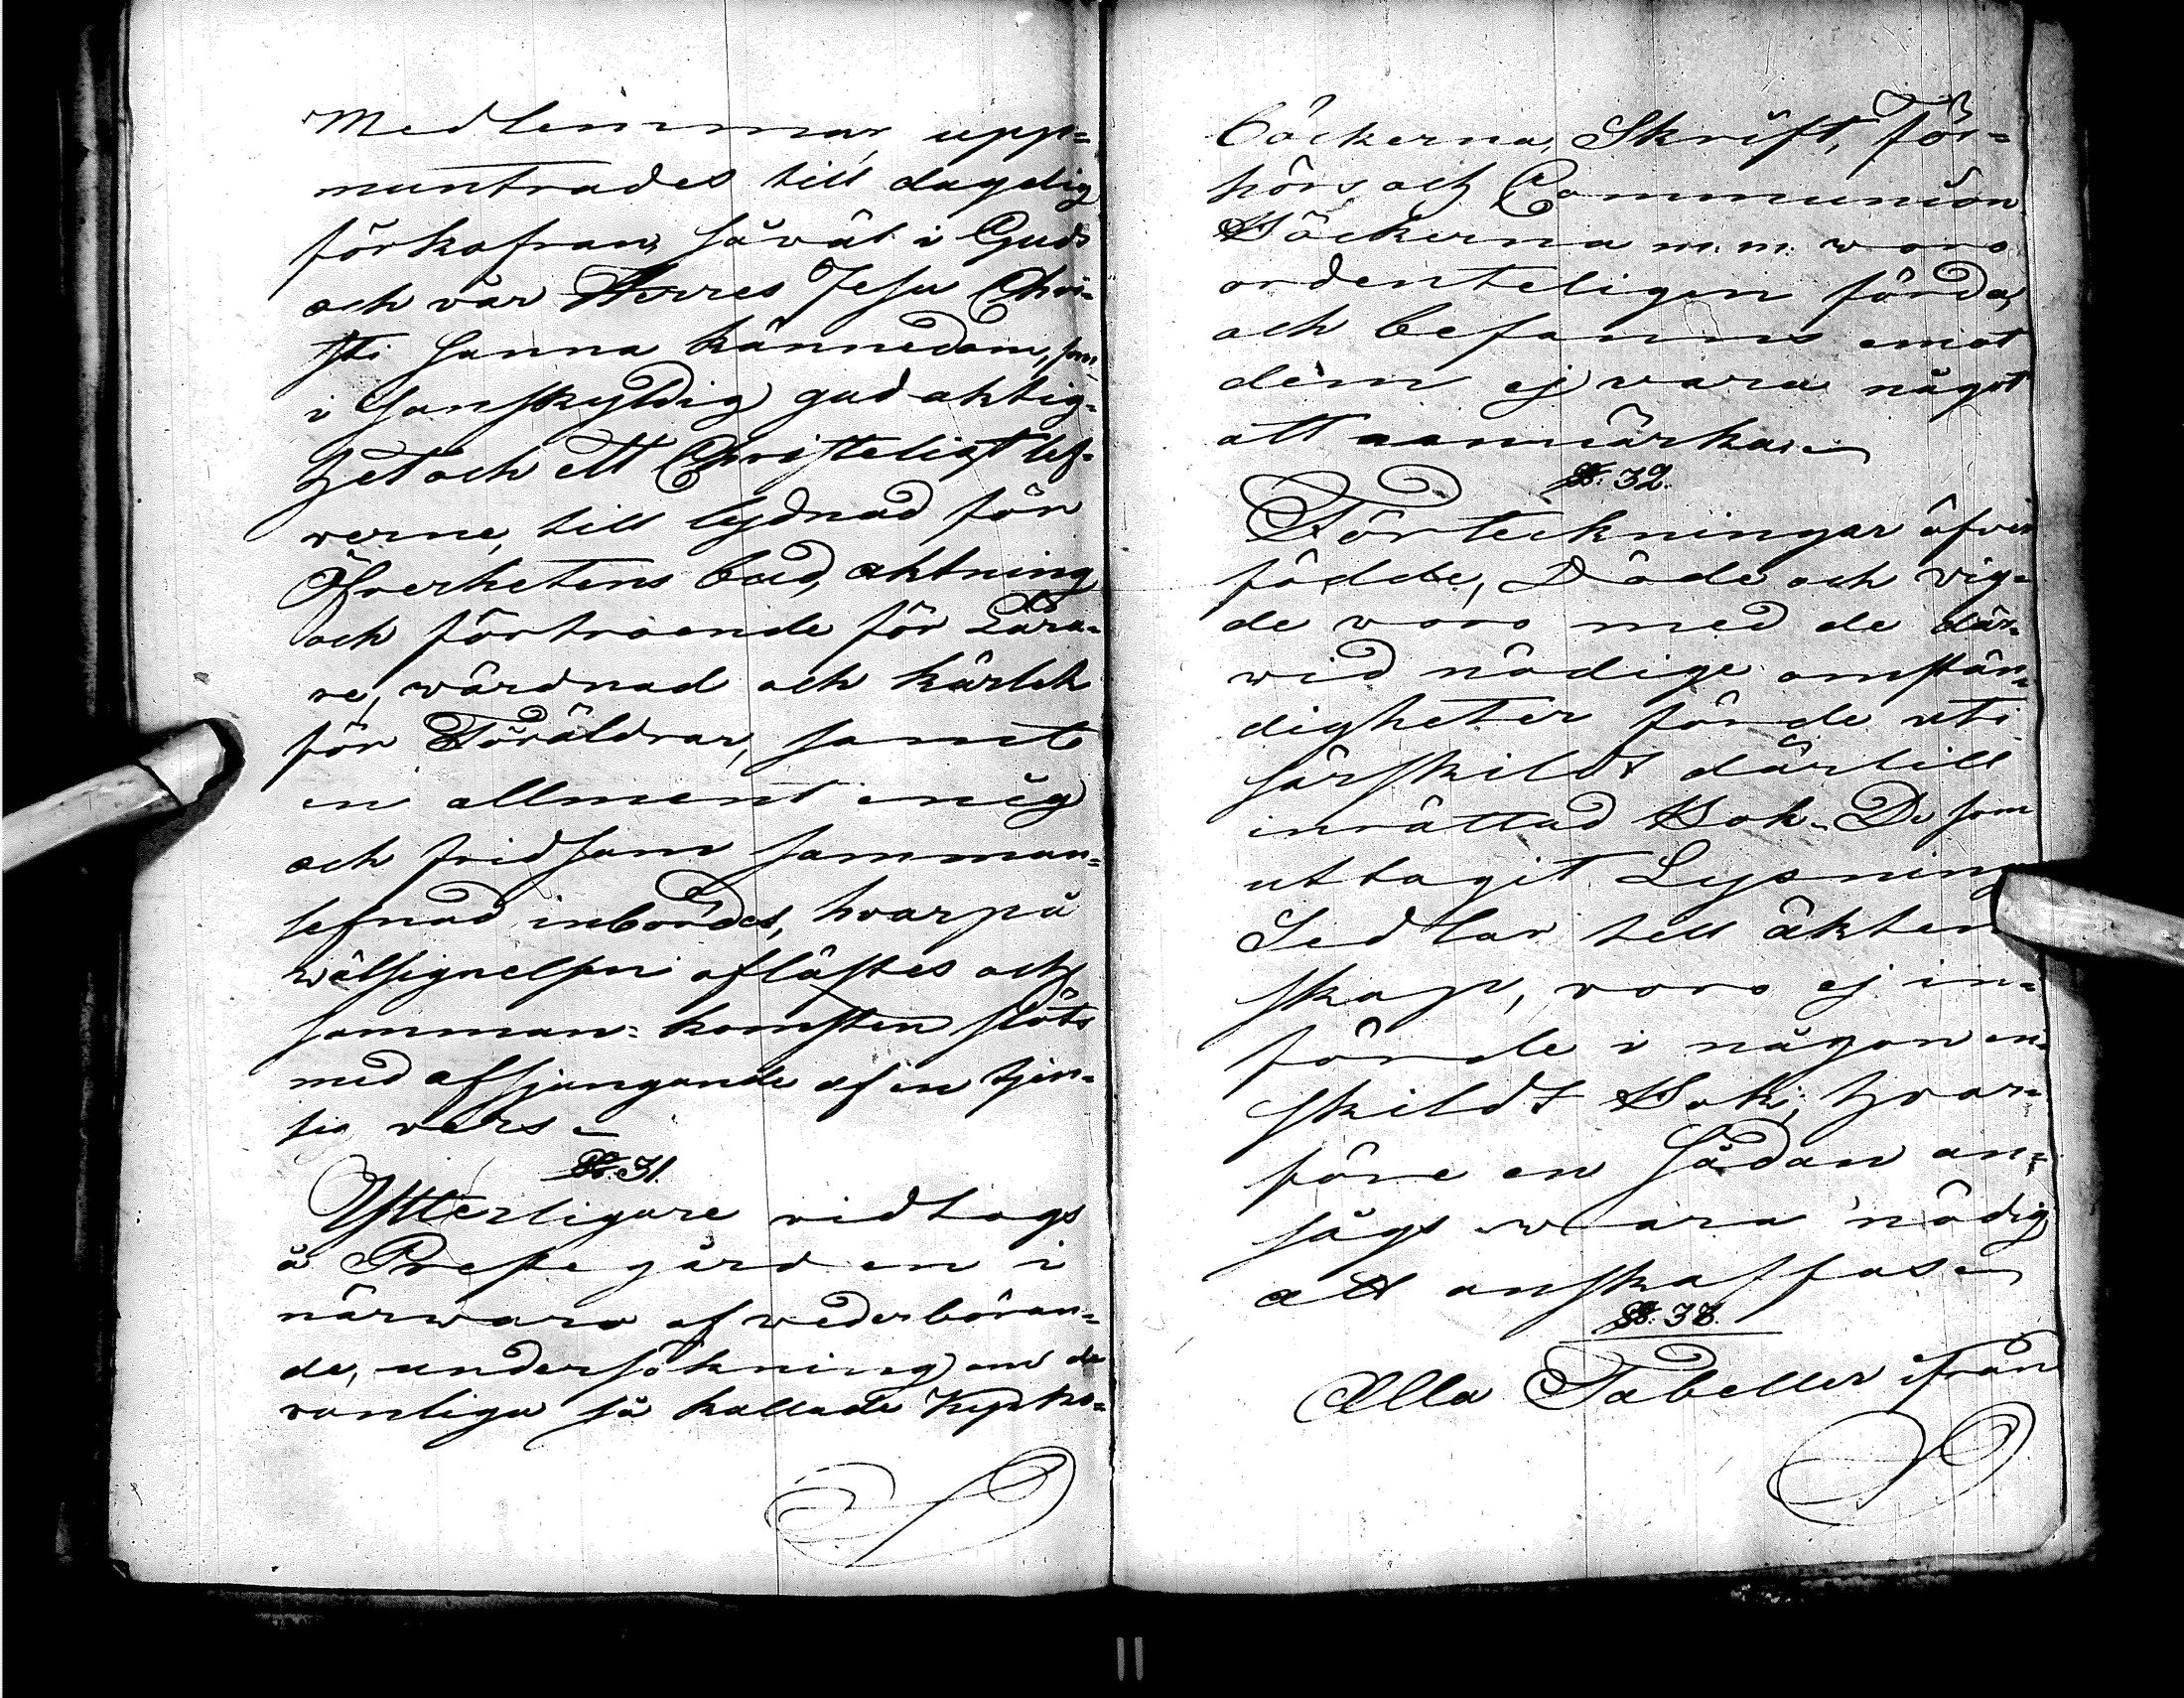 Medlemmar, upp=
muntrades till dagelig
förkofran, såväl i Guds
och vår Herres Jesu Chri=
sti sanna kännedom, som
i sanskyldig gudaktig=
het och ett Christeligt lef=
verne, till lydnad för
Öfverhetens bud, aktning
och förtroende för Lära=
re, wårdnad och kärlek
för Föräldrar, samt
en allment enig
och fridsam samman=
lefnad inbördes, hvarpå
wälsignelsen aflästes och
samman=komsten slöts
med afsjungande af en tjen=
lig vers.
§. 31.
Ytterligare vidtogs
å Prestegården i
närwaro af vederböran=
de, undersökning om de
vanliga så kallade Kyrko=
böckerna, Skrift, För=
hörs och Communion
Böckerna m.m. woro
ordenteligen förda,
och befanns emot
dem ej vara något
att anmärka.
§. 32.
Förteckningar öfver
födde, Döde och vig=
de voro med de där=
vid nödige omstän=
digheter förde uti
särskildt därtill
inrättad Bok. De som
uttagit Lysning
Sedlar till äkten
skap, voro ej in=
förde i någon en=
skildt Bok, hvar=
före en sådan an=
sågs wara nödig
att anskaffas.
§. 33.
Alla Tabeller ifrån